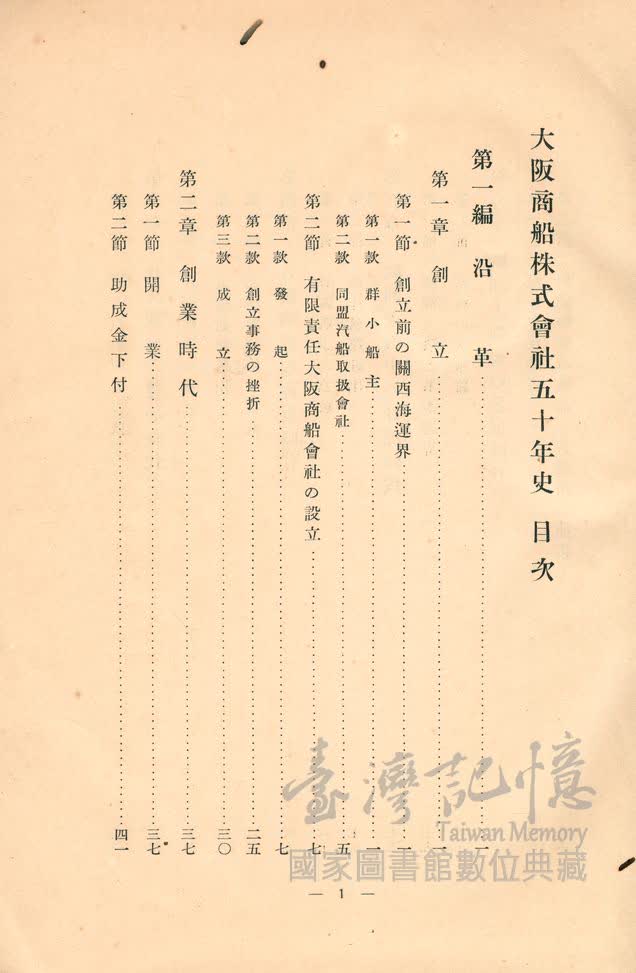 大阪商船株式會社五十年史 目次
第一編 沿革……一
第一章 創立……一
第一節 創立前の關西海運界……一
第一款 群小船主……一
第二款 同盟汽船取扱會社……五
第二節 有限責任大阪商船會社の設立……七
第一款 發起……七
第二款 創立事務の挫折……二五
第三款 成立……三〇
第二章 創業時代……三七
第一節 開業……三七
第二節 助成金下付……四一
臺灣記憶
Taiwan Memory
國家圖書館數位典藏
— 1 —